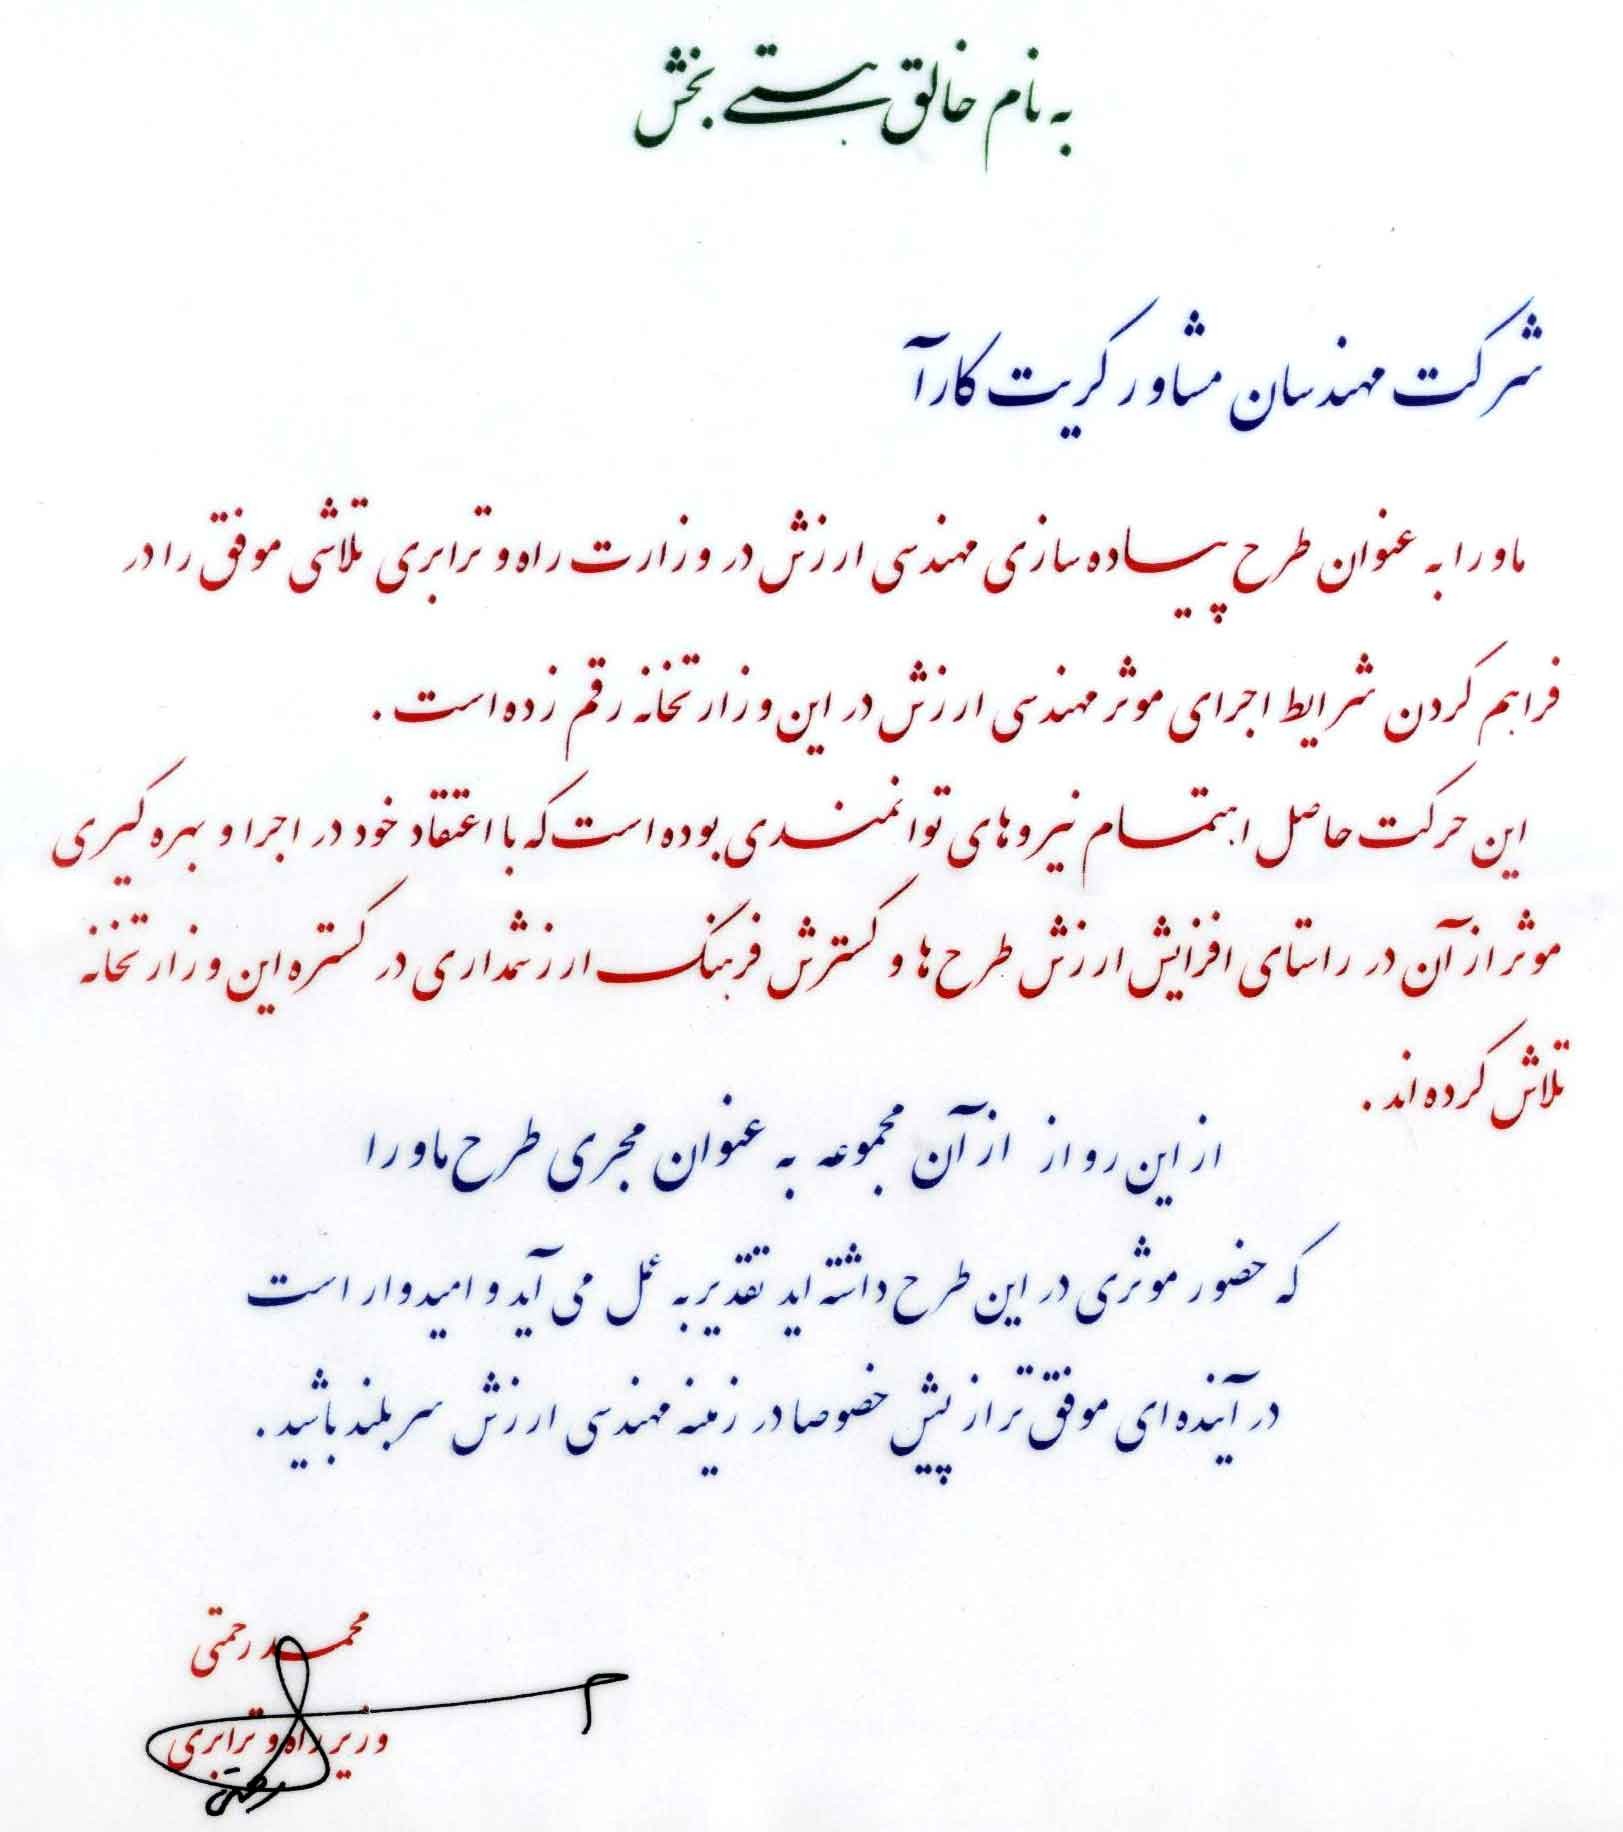 به نام خالق هستی بخش
شرکت مهندسان مشاور کریت کارآ
ماورا به عنوان طرح پیاده سازی مهندسی ارزش در وزارت راه و ترابری تلاشی موفق را در
فراهم کردن شرایط اجرای موثر مهندسی ارزش در این وزارتخانه رقم زده است .
این حرکت حاصل اهتمام نیروهای توانمندی بوده است که با اعتقاد خود در اجرا و بهره گیری
موثر از آن در راستای افزایش ارزش طرح ها و گسترش فرهنگ ارزشمداری در گستره این وزارتخانه
تلاش کرده اند .
از این رو از از آن مجموعه به عنوان مجری طرح ماورا
که حضور موثری در این طرح داشته اید تقدیر به عمل می آید و امیدوار است
در آینده ای موفق تر از پیش خصوصا در زمینه مهندسی ارزش سربلند باشید .
محمد رحمتی
وزیر راه و ترابری